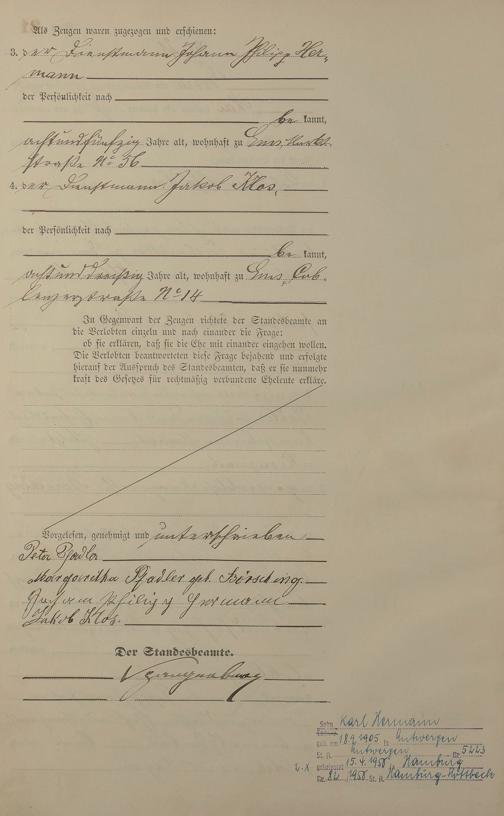 Als Zeugen waren zugezogen und erschienen:
3. der Dienstmann Johann Philipp Her-
mann
der Persönlichkeit nach
be kannt,
achtundfünfzig Jahre alt, wohnhaft zu Ems, Markt-
straße No 36
4. der Dienstmann Jakob Klos,
der Persönlichkeit nach
be kannt,
achtunddreißig Jahre alt, wohnhaft zu Ems, Cob-
lenzerstraße No 14
In Gegenwart der Zeugen richtete der Standesbeamte an
die Verlobten einzeln und nach einander die Frage:
ob sie erklären, daß sie die Ehe mit einander eingehen wollen.
Die Verlobten beantworteten diese Frage bejahend und erfolgte
hierauf der Ausspruch des Standesbeamten, daß er sie nunmehr
kraft des Gesetzes für rechtmäßig verbundene Eheleute erkläre.
Vorgelesen, genehmigt und unterschrieben
Peter Pfadler
Margaretha Pfadler geb.
Johann Philipp Hermann
Jakob Klos.
Der Standesbeamte.
Spangenberg
Sohn Karl Hermann
geb. am 18.9.1905 in Antwerpen
St. A. Antwerpen Nr. 5223
geheiratet 15.4.1958 Hamburg
Nr. 82/1958 St. A. Hamburg-